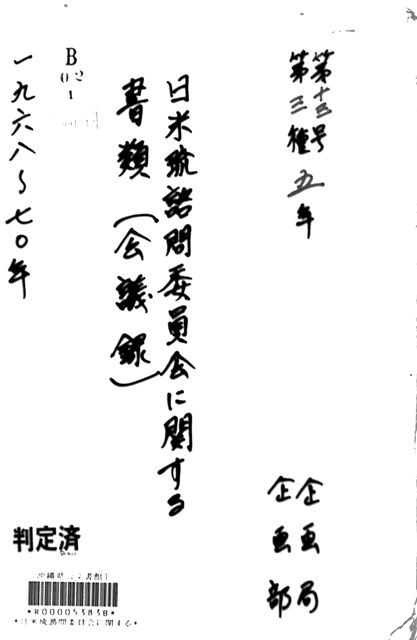 第十三号
第三種 五年
企画局
企画部
日米琉諮問委員会に関する
書類(会議録)
B
02
1
一九六八〜七〇年
判定済
沖縄県公文書館
*R00005383B*